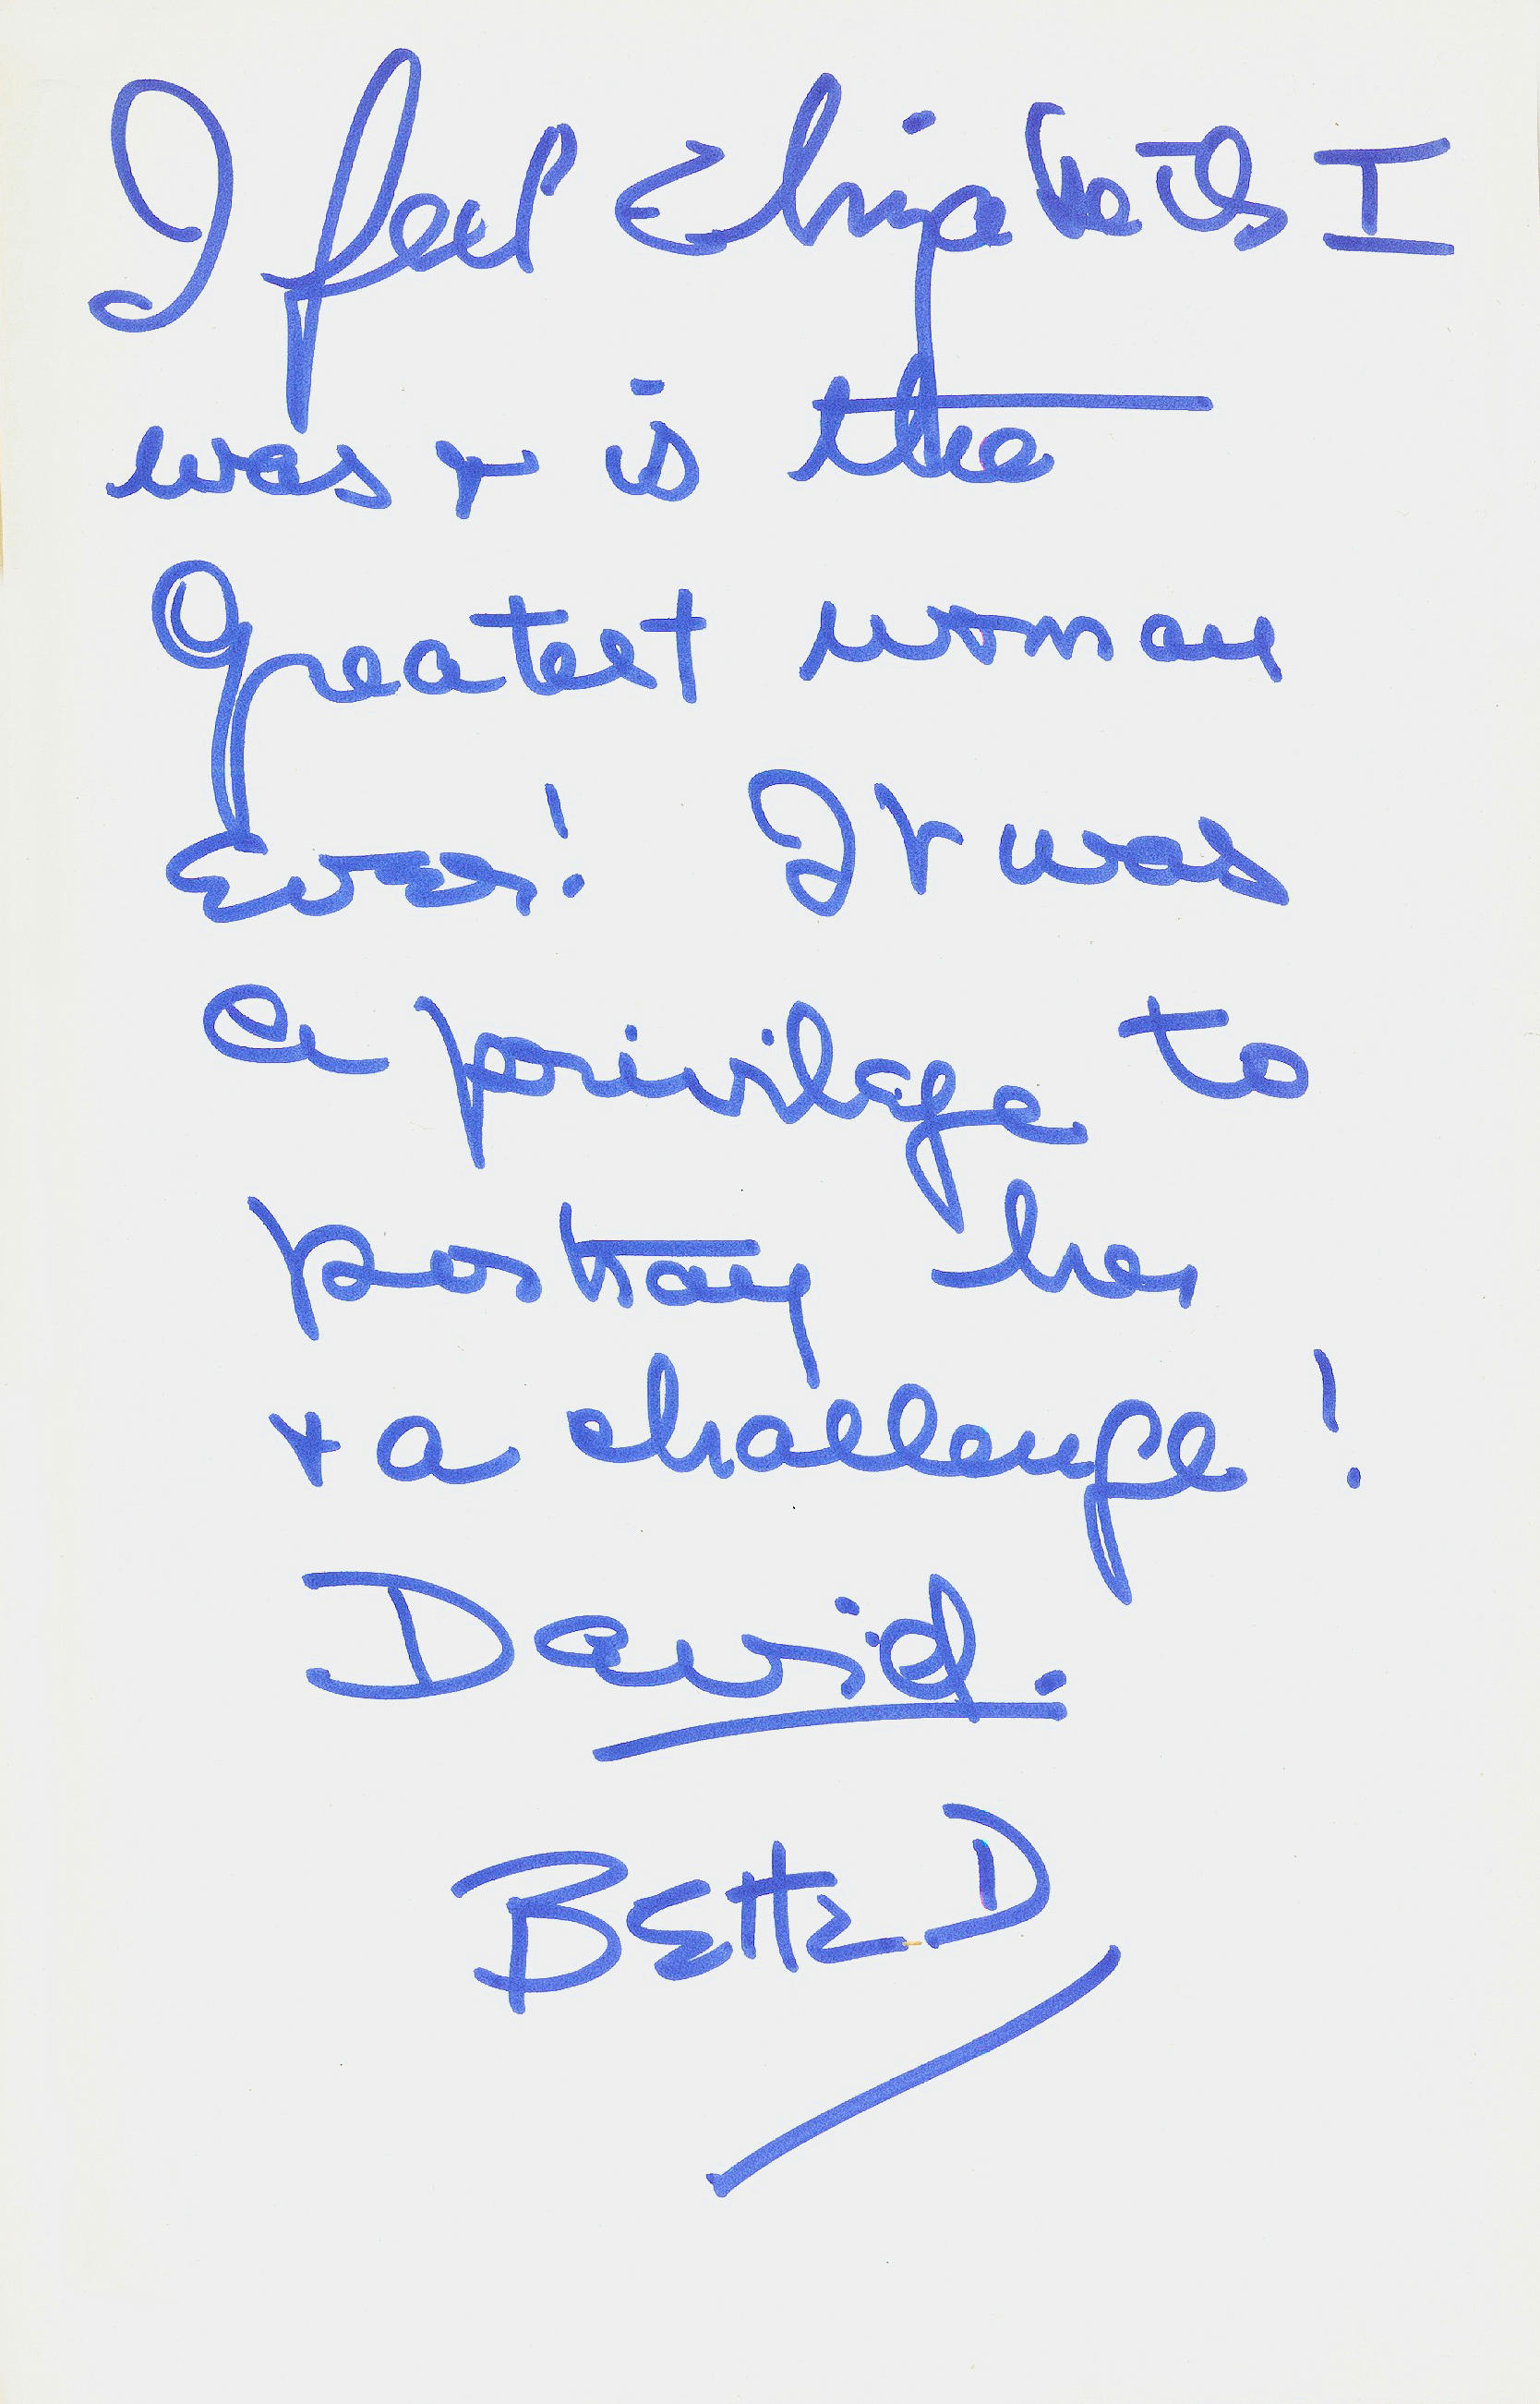 I feel Elizabeth I
was + is the
Greatest woman
Ever! It was
a privilege to
portray her
+ a challenge!
David.
Bette D